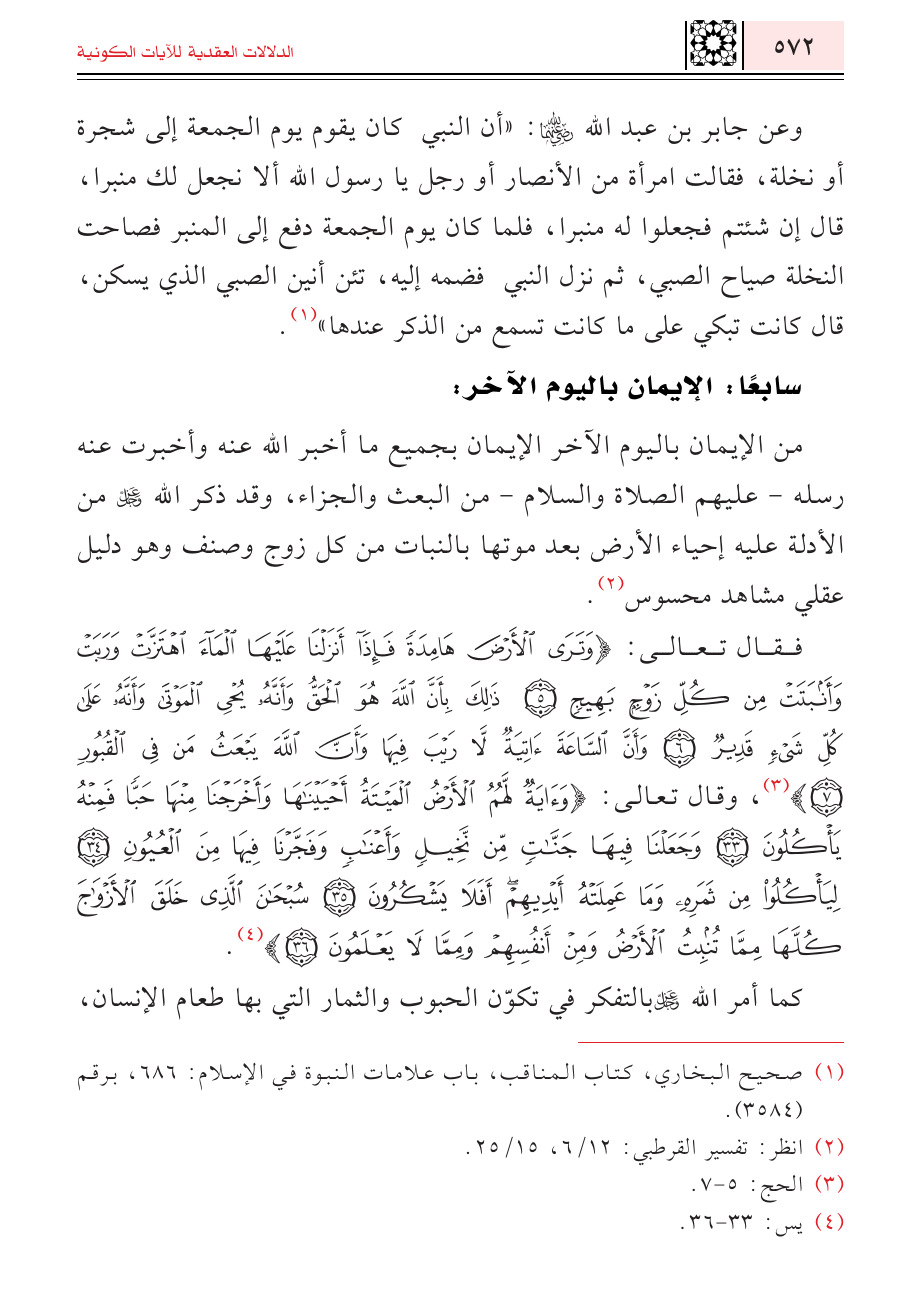 ٥٧٢
الدلالات العقدية للآيات الكونية
وعن جابر بن عبد الله رضي الله عنهما: «أن النبي كان يقوم يوم الجمعة إلى شجرة
أو نخلة، فقالت امرأة من الأنصار أو رجل يا رسول الله ألا نجعل لك منبرا،
قال إن شئتم فجعلوا له منبرا، فلما كان يوم الجمعة دفع إلى المنبر فصاحت
النخلة صياح الصبي، ثم نزل النبي فضمه إليه، تئن أنين الصبي الذي يسكن،
قال كانت تبكي على ما كانت تسمع من الذكر عندها»(١).
سابعًا: الإيمان باليوم الآخر:
من الإيمان باليوم الآخر الإيمان بجميع ما أخبر الله عنه وأخبرت عنه
رسله - عليهم الصلاة والسلام - من البعث والجزاء، وقد ذكر الله عز وجل من
الأدلة عليه إحياء الأرض بعد موتها بالنبات من كل زوج وصنف وهو دليل
عقلي مشاهد محسوس(٢).
فقال تعالى: ﴿وَتَرَى ٱلْأَرْضَ هَامِدَةً فَإِذَآ أَنزَلْنَا عَلَيْهَا ٱلْمَآءَ ٱهْتَزَّتْ وَرَبَتْ
وَأَنۢبَتَتْ مِن كُلِّ زَوْجٍۭ بَهِيجٍ ٥ ذَٰلِكَ بِأَنَّ ٱللَّهَ هُوَ ٱلْحَقُّ وَأَنَّهُۥ يُحْىِ ٱلْمَوْتَىٰ وَأَنَّهُۥ عَلَىٰ
كُلِّ شَىْءٍ قَدِيرٌ ٦ وَأَنَّ ٱلسَّاعَةَ ءَاتِيَةٌ لَّا رَيْبَ فِيهَا وَأَنَّ ٱللَّهَ يَبْعَثُ مَن فِى ٱلْقُبُورِ
٧﴾(٣)، وقال تعالى: ﴿وَءَايَةٌ لَّهُمُ ٱلْأَرْضُ ٱلْمَيْتَةُ أَحْيَيْنَٰهَا وَأَخْرَجْنَا مِنْهَا حَبًّا فَمِنْهُ
يَأْكُلُونَ ٣٣ وَجَعَلْنَا فِيهَا جَنَّٰتٍ مِّن نَّخِيلٍ وَأَعْنَٰبٍ وَفَجَّرْنَا فِيهَا مِنَ ٱلْعُيُونِ ٣٤
لِيَأْكُلُوا۟ مِن ثَمَرِهِۦ وَمَا عَمِلَتْهُ أَيْدِيهِمْ ۖ أَفَلَا يَشْكُرُونَ ٣٥ سُبْحَٰنَ ٱلَّذِى خَلَقَ ٱلْأَزْوَٰجَ
كُلَّهَا مِمَّا تُنۢبِتُ ٱلْأَرْضُ وَمِنْ أَنفُسِهِمْ وَمِمَّا لَا يَعْلَمُونَ ٣٦﴾(٤).
كما أمر الله عز وجل بالتفكر في تكوّن الحبوب والثمار التي بها طعام الإنسان،
(١) صحيح البخاري، كتاب المناقب، باب علامات النبوة في الإسلام: ٦٨٦، برقم
(٣٥٨٤).
(٢) انظر: تفسير القرطبي: ٦/١٢، ٢٥/١٥.
(٣) الحج: ٥-٧.
(٤) يس: ٣٣-٣٦.